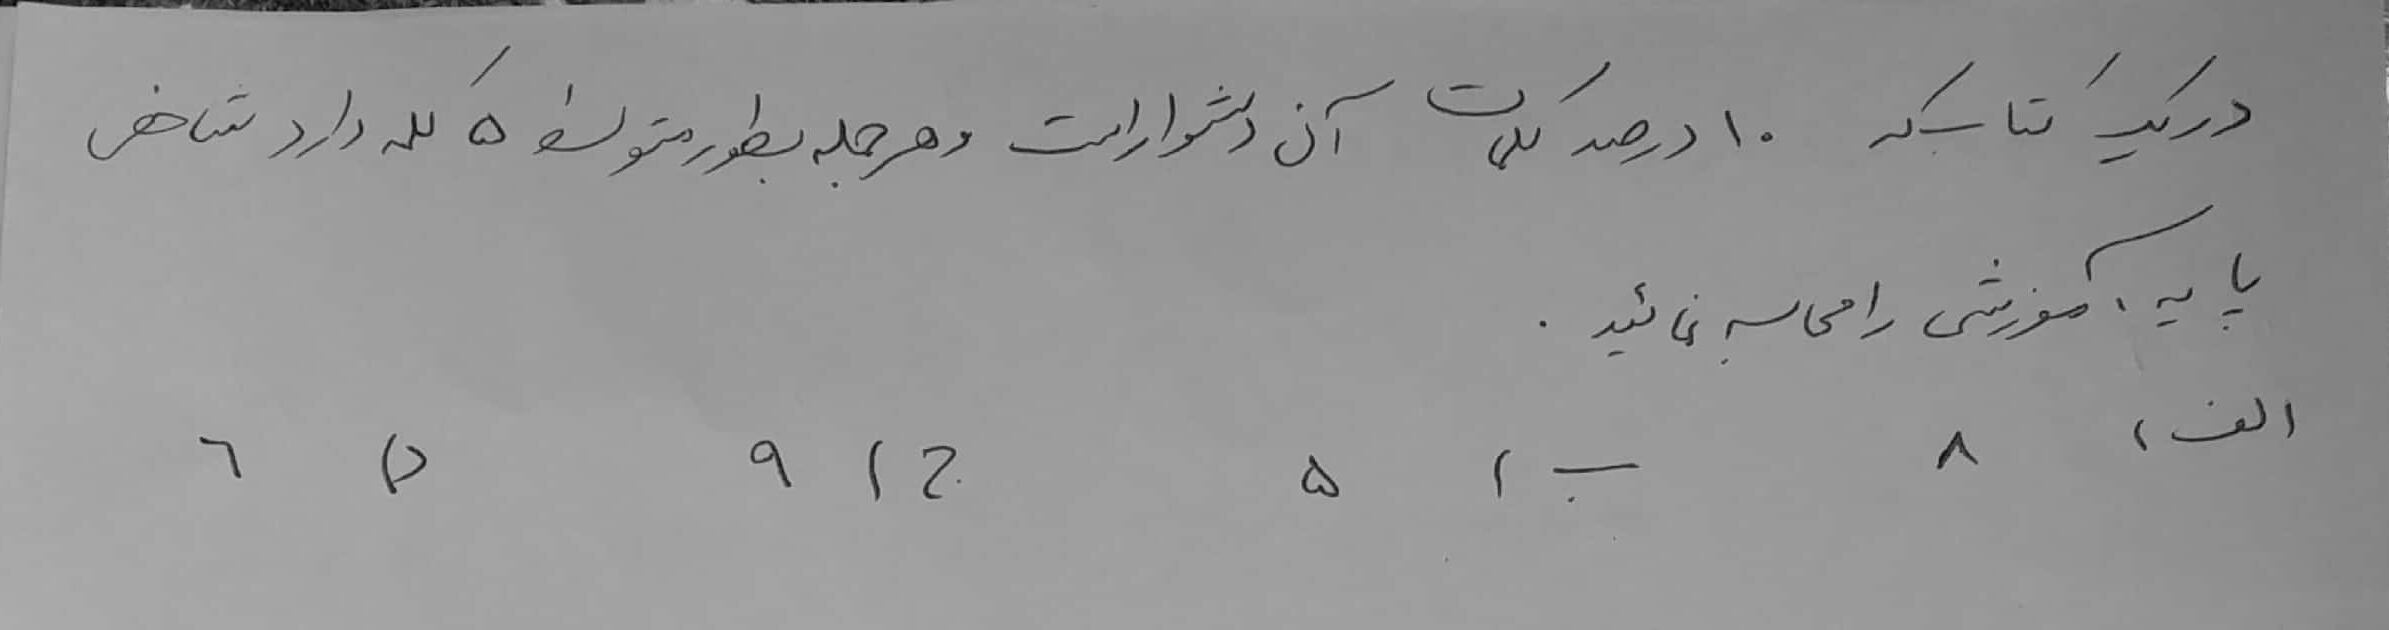 در یک کتاب که ۱۰ درصد کلمات آن دشوار است و هر جمله بطور متوسط ۵ کلمه دارد شاخص
پایه آموزشی را محاسبه نمائید .
الف) ۸ ب) ۵ ج) ۹ د) ٦